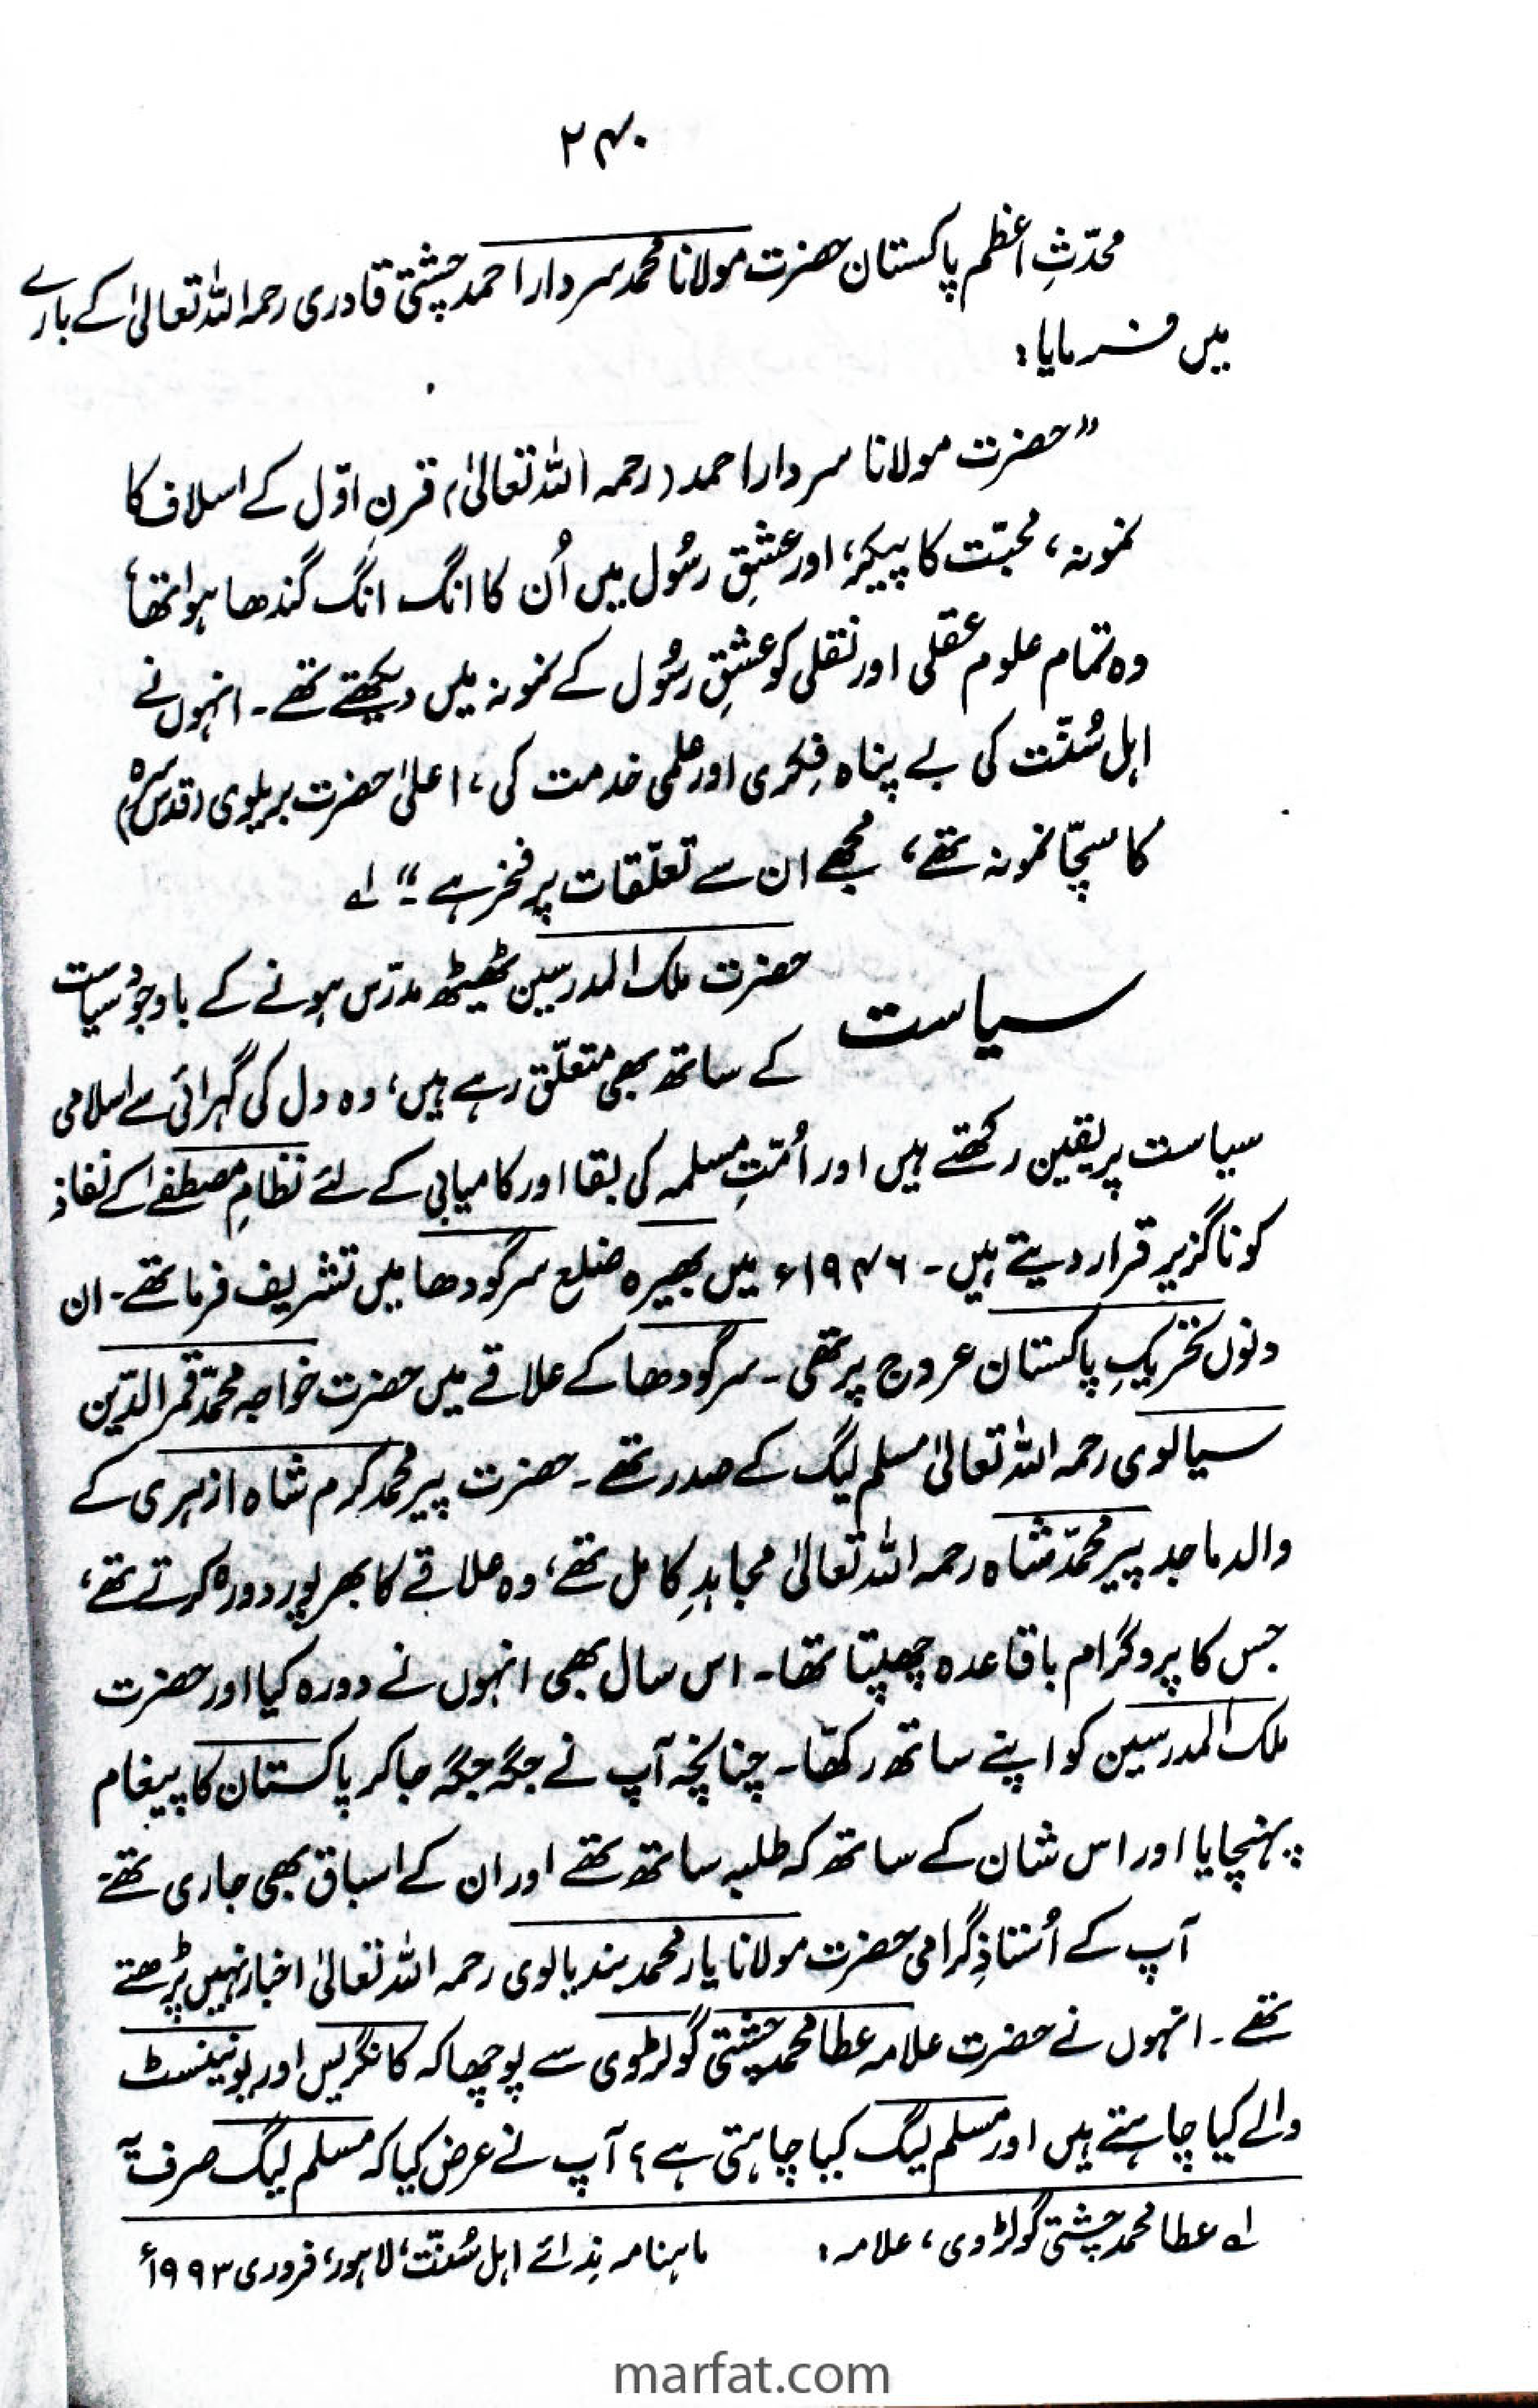 ۲۴۰
محدّثِ اعظم پاکستان حضرت مولانا محمد سردار احمد چشتی قادری رحمہ اللہ تعالیٰ کے بارے
میں فرمایا:
”حضرت مولانا سردار احمد (رحمہ اللہ تعالیٰ) قرنِ اوّل کے اسلاف کا
نمونہ، محبّت کا پیکر، اور عشقِ رسُول میں اُن کا انگ انگ گندھا ہوا تھا،
وہ تمام علوم عقلی اور نقلی کو عشقِ رسُول کے نمونہ میں دیکھتے تھے۔ انہوں نے
اہل سُنّت کی بے پناہ فِکری اور علمی خدمت کی، اعلیٰ حضرت بریلوی (قدس سرہ)
کا سچّا نمونہ تھے، مجھے ان سے تعلّقات پر فخر ہے۔“ لے
سیاست
حضرت ملک المدرسین ٹھیٹھ مدرّس ہونے کے باوجود سیاست
کے ساتھ بھی متعلّق رہے ہیں، وہ دل کی گہرائی سے اسلامی
سیاست پر یقین رکھتے ہیں اور اُمّتِ مسلمہ کی بقا اور کامیابی کے لئے نظامِ مصطفےٰ کے نفاذ
کو ناگزیر قرار دیتے ہیں۔ ۱۹۴۶ء میں بھیرہ ضلع سرگودھا میں تشریف فرما تھے۔ ان
دنوں تحریکِ پاکستان عروج پر تھی۔ سرگودھا کے علاقے میں حضرت خواجہ محمّد قمر الدّین
سیالوی رحمہ اللہ تعالیٰ مسلم لیگ کے صدر تھے۔ حضرت پیر محمد کرم شاہ ازہری کے
والد ماجد پیر محمّد شاہ رحمہ اللہ تعالیٰ مجاہدِ کامل تھے، وہ علاقے کا بھرپور دورہ کرتے تھے،
جس کا پروگرام باقاعدہ چھپتا تھا۔ اس سال بھی انہوں نے دورہ کیا اور حضرت
ملک المدرسین کو اپنے ساتھ رکھّا۔ چنانچہ آپ نے جگہ جگہ جا کر پاکستان کا پیغام
پہنچایا اور اس شان کے ساتھ کہ طلبہ ساتھ تھے اور ان کے اسباق بھی جاری تھے۔
آپ کے اُستاذِ گرامی حضرت مولانا یار محمد بندیالوی رحمہ اللہ تعالیٰ اخبار نہیں پڑھتے
تھے۔ انہوں نے حضرت علامہ عطا محمد چشتی گولڑوی سے پوچھا کہ کانگریس اور یونینسٹ
والے کیا چاہتے ہیں اور مسلم لیگ کیا چاہتی ہے؟ آپ نے عرض کیا کہ مسلم لیگ صرف یہ
لے عطا محمد چشتی گولڑوی، علامہ: ماہنامہ نِدائے اہل سُنّت، لاہور، فروری ۱۹۹۳ء
marfat.com